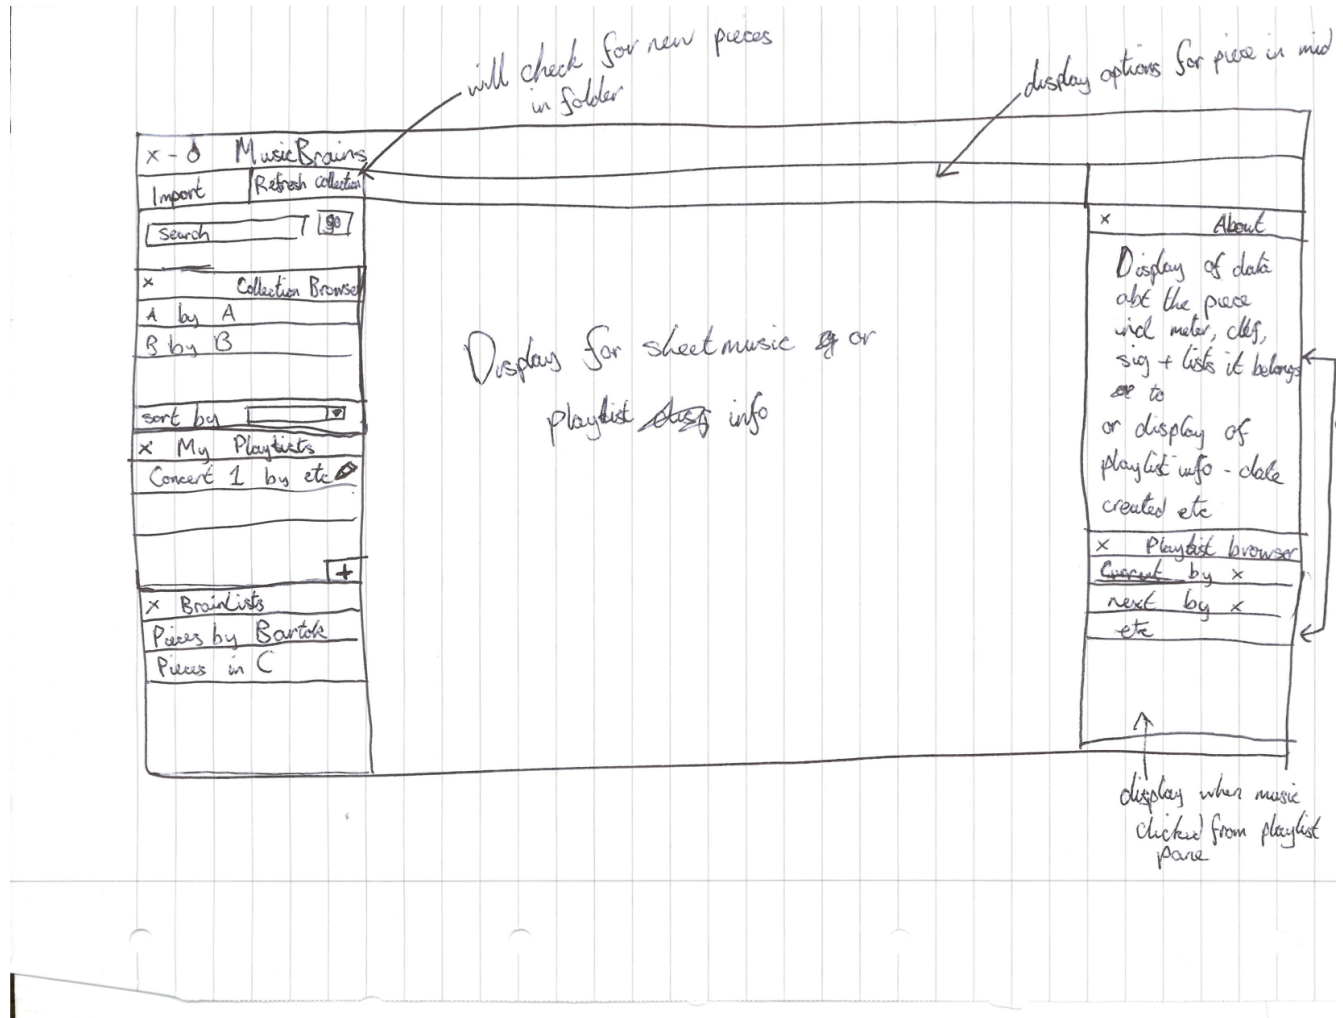 will check for new pieces
in folder
display options for piece in mid
x - MusicBrains
Import Refresh Collection
search go
x Collection Browser
A by A
B by B
sort by
x My Playlists
Concert 1 by etc
+
x BrainLists
Pieces by Bartok
Pieces in C
Display for sheetmusic or
playlist info
x About
Display of data
abt the piece
incl meter, clef,
sig + lists it belongs
to
or display of
playlist info - date
created etc
x Playlist browser
Current by x
next by x
etc
display when music
clicked from playlist
pane